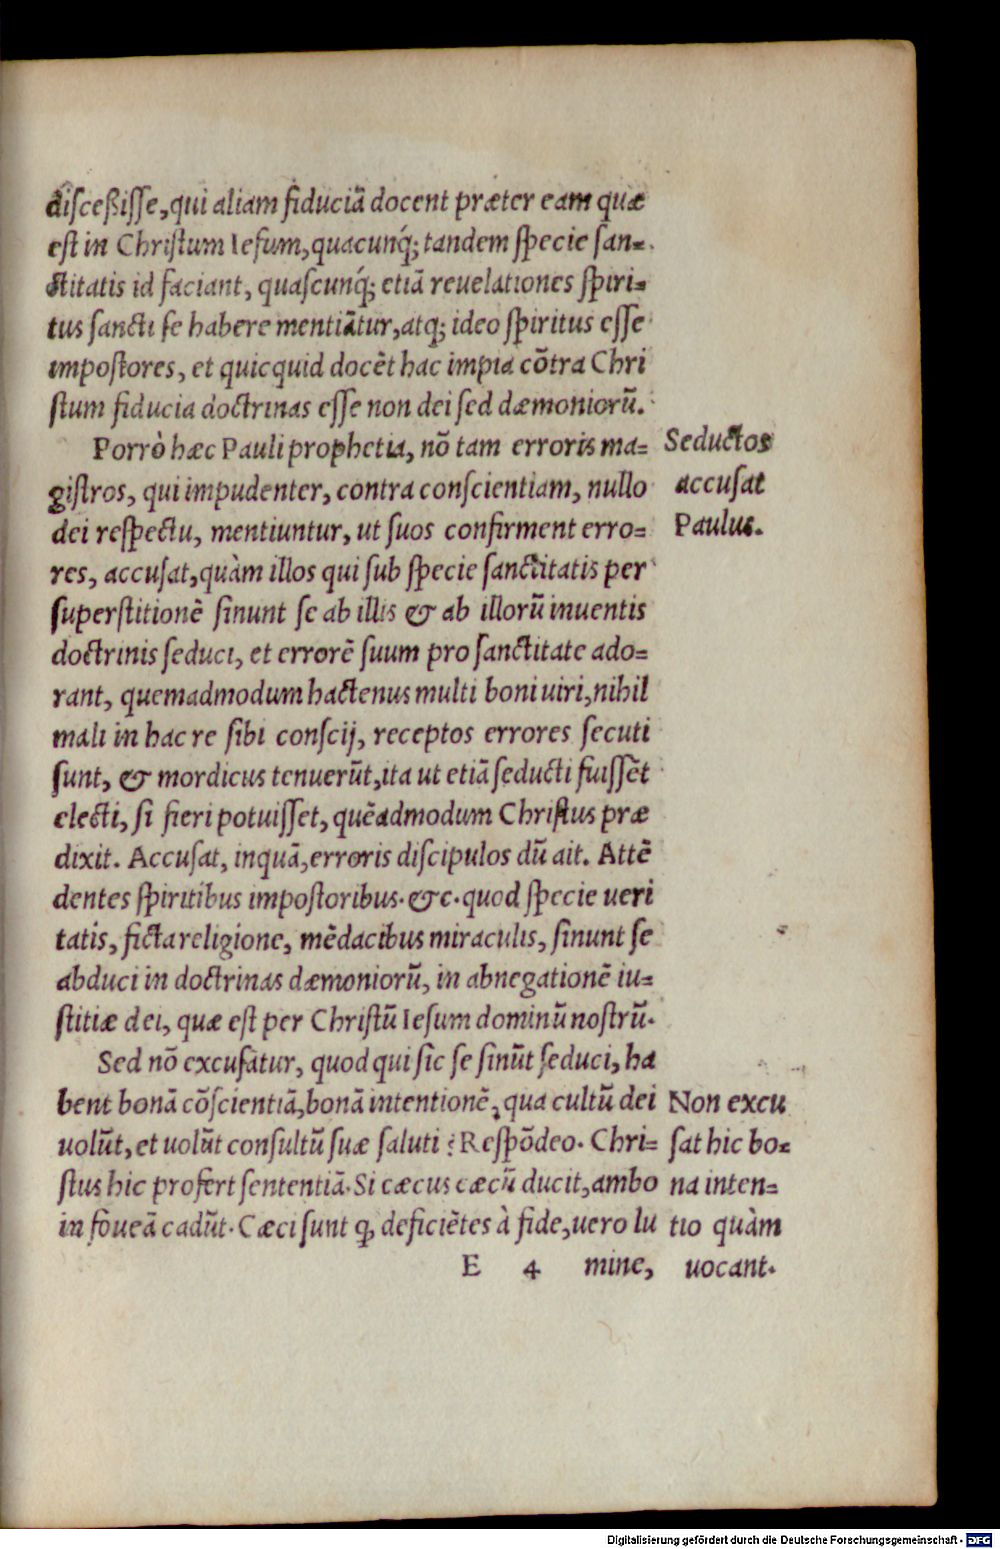 disceßisse, qui aliam fiduciã docent præter eam quæ
est in Christum Iesum, quacunq́; tandem specie san=
ctitatis id faciant, quascunq́; etiã reuelationes spiri=
tus sancti se habere mentiãtur, atq; ideo spiritus esse
impostores, et quicquid docẽt hac impia cõtra Chri
stum fiducia doctrinas esse non dei sed dæmoniorũ.
Porrò hæc Pauli prophetia, nõ tam erroris ma=
gistros, qui impudenter, contra conscientiam, nullo
dei respectu, mentiuntur, ut suos confirment erro=
res, accusat, quàm illos qui sub specie sanctitatis per
superstitionẽ sinunt se ab illis & ab illorũ inuentis
doctrinis seduci, et errorẽ suum pro sanctitate ado=
rant, quemadmodum hactenus multi boni uiri, nihil
mali in hac re sibi conscij, receptos errores secuti
sunt, & mordicus tenuerũt, ita ut etiã seducti fuissẽt
electi, si fieri potuisset, quẽadmodum Christus præ
dixit. Accusat, inquã, erroris discipulos dũ ait. Attẽ
dentes spiritibus impostoribus. &c. quod specie ueri
tatis, ficta religione, mẽdacibus miraculis, sinunt se
abduci in doctrinas dæmoniorũ, in abnegationẽ iu=
stitiæ dei, quæ est per Christũ Iesum dominũ nostrũ.
Sed nõ excusãtur, quod qui sic se sinũt seduci, ha
bent bonã cõscientiã, bonã intentionẽ, qua cultũ dei
uolũt, et uolũt consultũ suæ saluti? Respõdeo. Chri=
stus hic profert sententiã. Si cæcus cæcũ ducit, ambo
in foueã cadũt. Cæci sunt ꝙ deficiẽtes à fide, uero lu
E 4 mine,
Seductos
accusat
Paulus.
Non excu
sat hic bo=
na inten=
tio quàm
uocant.
Digitalisierung gefördert durch die Deutsche Forschungsgemeinschaft - DFG